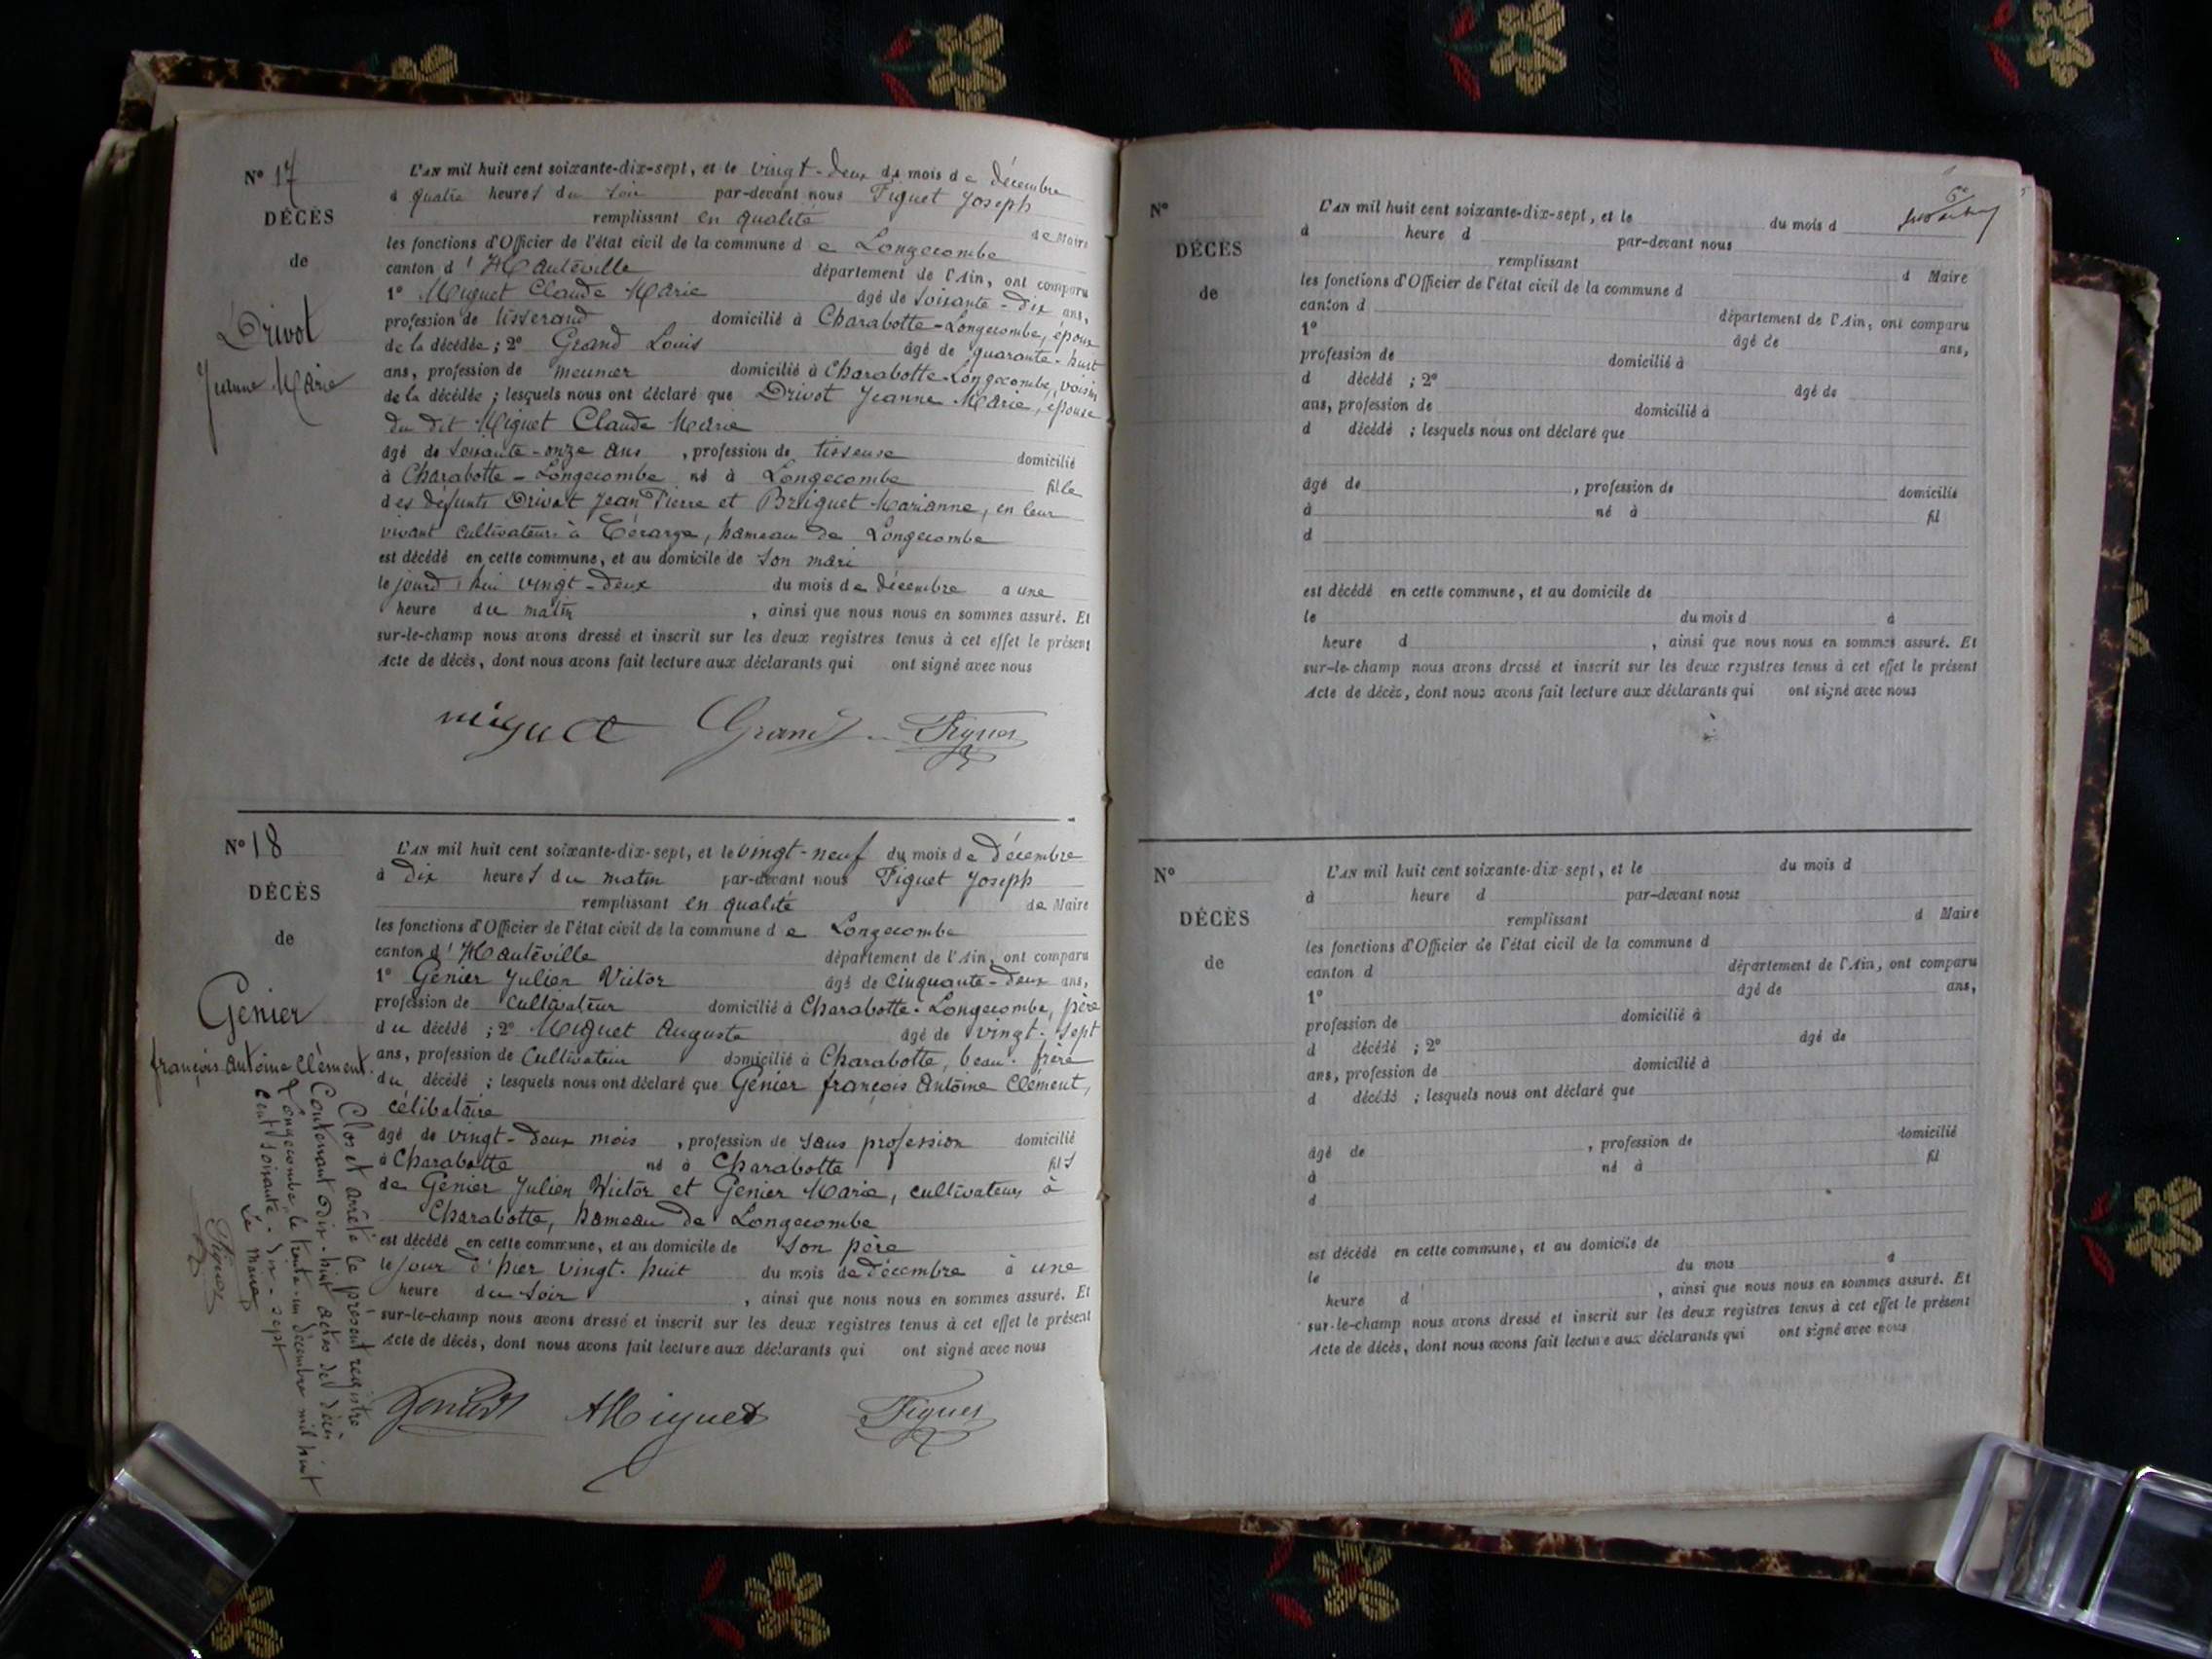 N° 17
DÉCÈS
de
Drivot
Jeanne Marie
L'AN mil huit cent soixante-dix-sept, et le vingt-deux du mois de décembre
à quatre heures du soir par-devant nous Figuet Joseph
remplissant en qualité de Maire
les fonctions d'Officier de l'état civil de la commune de Longecombe
canton d'Hauteville département de l'Ain, ont comparu
1° Miguet Claude Marie âgé de soixante-dix ans,
profession de tisserand domicilié à Charabotte-Longecombe, époux
de la décédée ; 2° Grand Louis âgé de quarante-huit
ans, profession de meunier domicilié à Charabotte-Longecombe, voisin
de la décédée ; lesquels nous ont déclaré que Drivot Jeanne Marie, épouse
du dit Miguet Claude Marie
âgé de soixante-onze ans , profession de tisseuse domicilié
à Charabotte-Longecombe né à Longecombe fille
des défunts Drivot Jean Pierre et Briguet Marianne, en leur
vivant cultivateurs à , hameau de Longecombe
est décédé en cette commune, et au domicile de son mari
le jourd'hui vingt-deux du mois de décembre à une
heure du matin , ainsi que nous nous en sommes assuré. Et
sur-le-champ nous avons dressé et inscrit sur les deux registres tenus à cet effet le présent
Acte de décès, dont nous avons fait lecture aux déclarants qui ont signé avec nous
miguet Grand Figuet
N° 18
DÉCÈS
de
Genier
françois Antoine Clément.
L'AN mil huit cent soixante-dix-sept, et le vingt-neuf du mois de décembre
à dix heures du matin par-devant nous Figuet Joseph
remplissant en qualité de Maire
les fonctions d'Officier de l'état civil de la commune de Longecombe
canton d'Hauteville département de l'Ain, ont comparu
1° Genier Julien Victor âgé de cinquante-deux ans,
profession de cultivateur domicilié à Charabotte-Longecombe, père
du décédé ; 2° Miguet Auguste âgé de vingt-sept
ans, profession de Cultivateur domicilié à Charabotte, beau-frère
du décédé ; lesquels nous ont déclaré que Genier françois Antoine Clément,
célibataire
âgé de vingt-deux mois , profession de sans profession domicilié
à Charabotte né à Charabotte fils
de Genier Julien Victor et Genier Marie, cultivateurs à
Charabotte, hameau de Longecombe
est décédé en cette commune, et au domicile de son père
le jour d'hier vingt-huit du mois de décembre à une
heure du soir , ainsi que nous nous en sommes assuré. Et
sur-le-champ nous avons dressé et inscrit sur les deux registres tenus à cet effet le présent
Acte de décès, dont nous avons fait lecture aux déclarants qui ont signé avec nous
Genier AMiguet Figuet
Clos et arrêté le présent registre
Contenant dix-huit actes de décès
Longecombe, le trente-un décembre mil huit
cent soixante-dix-sept
Le maire
Figuet
6e
N°
DÉCÈS
de
L'AN mil huit cent soixante-dix-sept, et le du mois d
à heure d par-devant nous
remplissant d Maire
les fonctions d'Officier de l'état civil de la commune d
canton d département de l'Ain, ont comparu
1° âgé de ans,
profession de domicilié à
d décédé ; 2° âgé de
ans, profession de domicilié à
d décédé ; lesquels nous ont déclaré que
âgé de , profession de domicilié
à né à fil
d
est décédé en cette commune, et au domicile de
le du mois d à
heure d , ainsi que nous nous en sommes assuré. Et
sur-le-champ nous avons dressé et inscrit sur les deux registres tenus à cet effet le présent
Acte de décès, dont nous avons fait lecture aux déclarants qui ont signé avec nous
N°
DÉCÈS
de
L'AN mil huit cent soixante-dix-sept, et le du mois d
à heure d par-devant nous
remplissant d Maire
les fonctions d'Officier de l'état civil de la commune d
canton d département de l'Ain, ont comparu
1° âgé de ans,
profession de domicilié à
d décédé ; 2° âgé de
ans, profession de domicilié à
d décédé ; lesquels nous ont déclaré que
âgé de , profession de domicilié
à né à fil
d
est décédé en cette commune, et au domicile de
le du mois à
heure d , ainsi que nous nous en sommes assuré. Et
sur-le-champ nous avons dressé et inscrit sur les deux registres tenus à cet effet le présent
Acte de décès, dont nous avons fait lecture aux déclarants qui ont signé avec nous